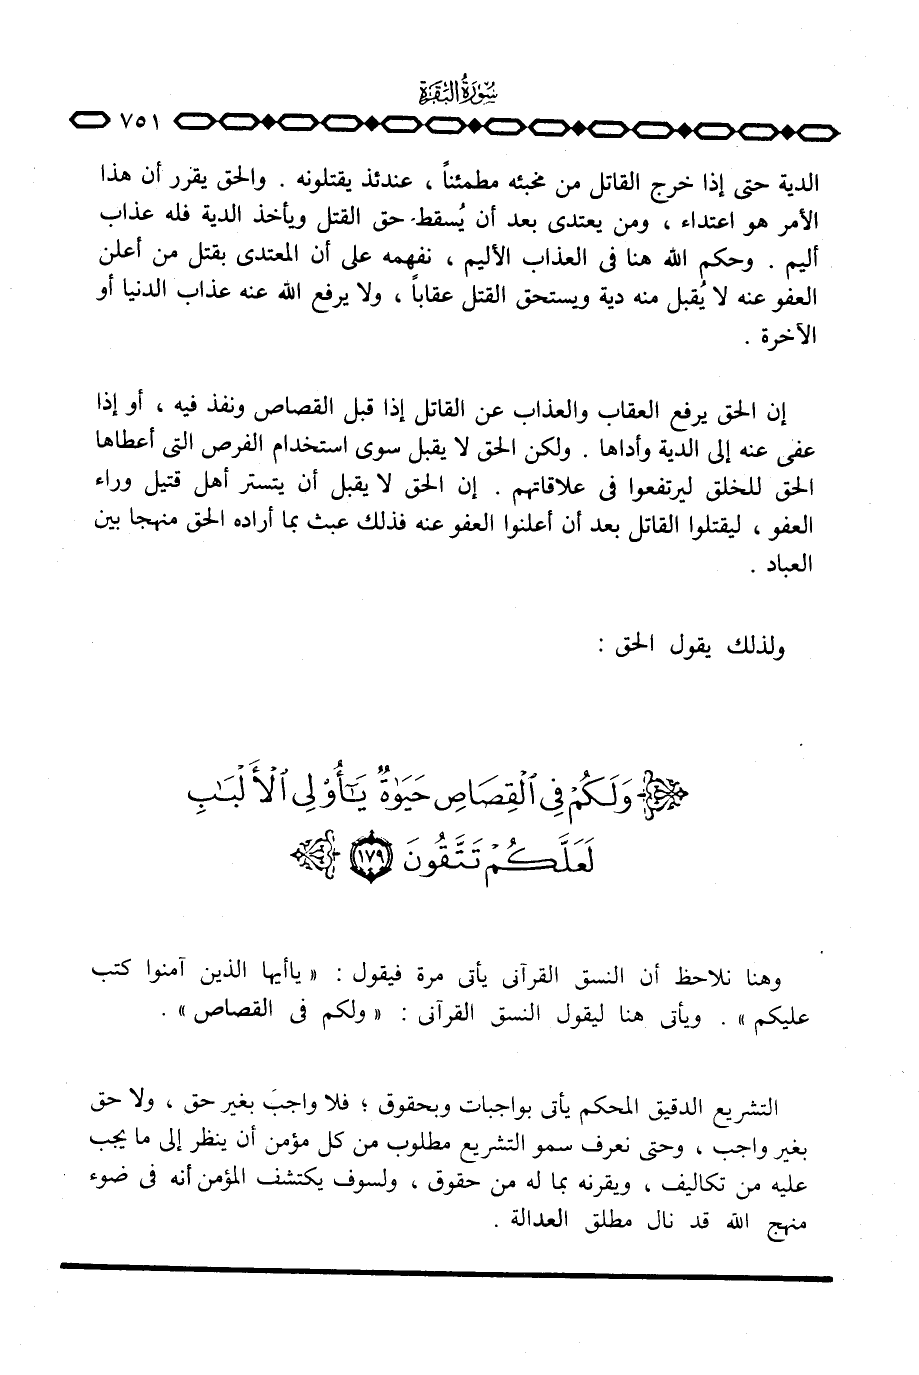 سُورَةُ البَقَرَةِ
٧٥١
الدية حتى إذا خرج القاتل من مخبئه مطمئناً ، عندئذ يقتلونه . والحق يقرر أن هذا
الأمر هو اعتداء ، ومن يعتدى بعد أن يُسقط حق القتل ويأخذ الدية فله عذاب
أليم . وحكم الله هنا فى العذاب الأليم ، نفهمه على أن المعتدى بقتل من أعلن
العفو عنه لا يُقبل منه دية ويستحق القتل عقاباً ، ولا يرفع الله عنه عذاب الدنيا أو
الآخرة .
إن الحق يرفع العقاب والعذاب عن القاتل إذا قبل القصاص ونفذ فيه ، أو إذا
عفى عنه إلى الدية وأداها . ولكن الحق لا يقبل سوى استخدام الفرص التى أعطاها
الحق للخلق ليرتفعوا فى علاقاتهم . إن الحق لا يقبل أن يتستر أهل قتيل وراء
العفو ، ليقتلوا القاتل بعد أن أعلنوا العفو عنه فذلك عبث بما أراده الحق منهجا بين
العباد .
ولذلك يقول الحق :
وَلَكُمْ فِى ٱلْقِصَاصِ حَيَوٰةٌ يَـٰٓأُو۟لِى ٱلْأَلْبَـٰبِ
لَعَلَّكُمْ تَتَّقُونَ ١٧٩
وهنا نلاحظ أن النسق القرآنى يأتى مرة فيقول : « ياأيها الذين آمنوا كتب
عليكم » . ويأتى هنا ليقول النسق القرآنى : « ولكم فى القصاص » .
التشريع الدقيق المحكم يأتى بواجبات وبحقوق ؛ فلا واجبَ بغير حق ، ولا حق
بغير واجب ، وحتى نعرف سمو التشريع مطلوب من كل مؤمن أن ينظر إلى ما يجب
عليه من تكاليف ، ويقرنه بما له من حقوق ، ولسوف يكتشف المؤمن أنه فى ضوء
منهج الله قد نال مطلق العدالة .